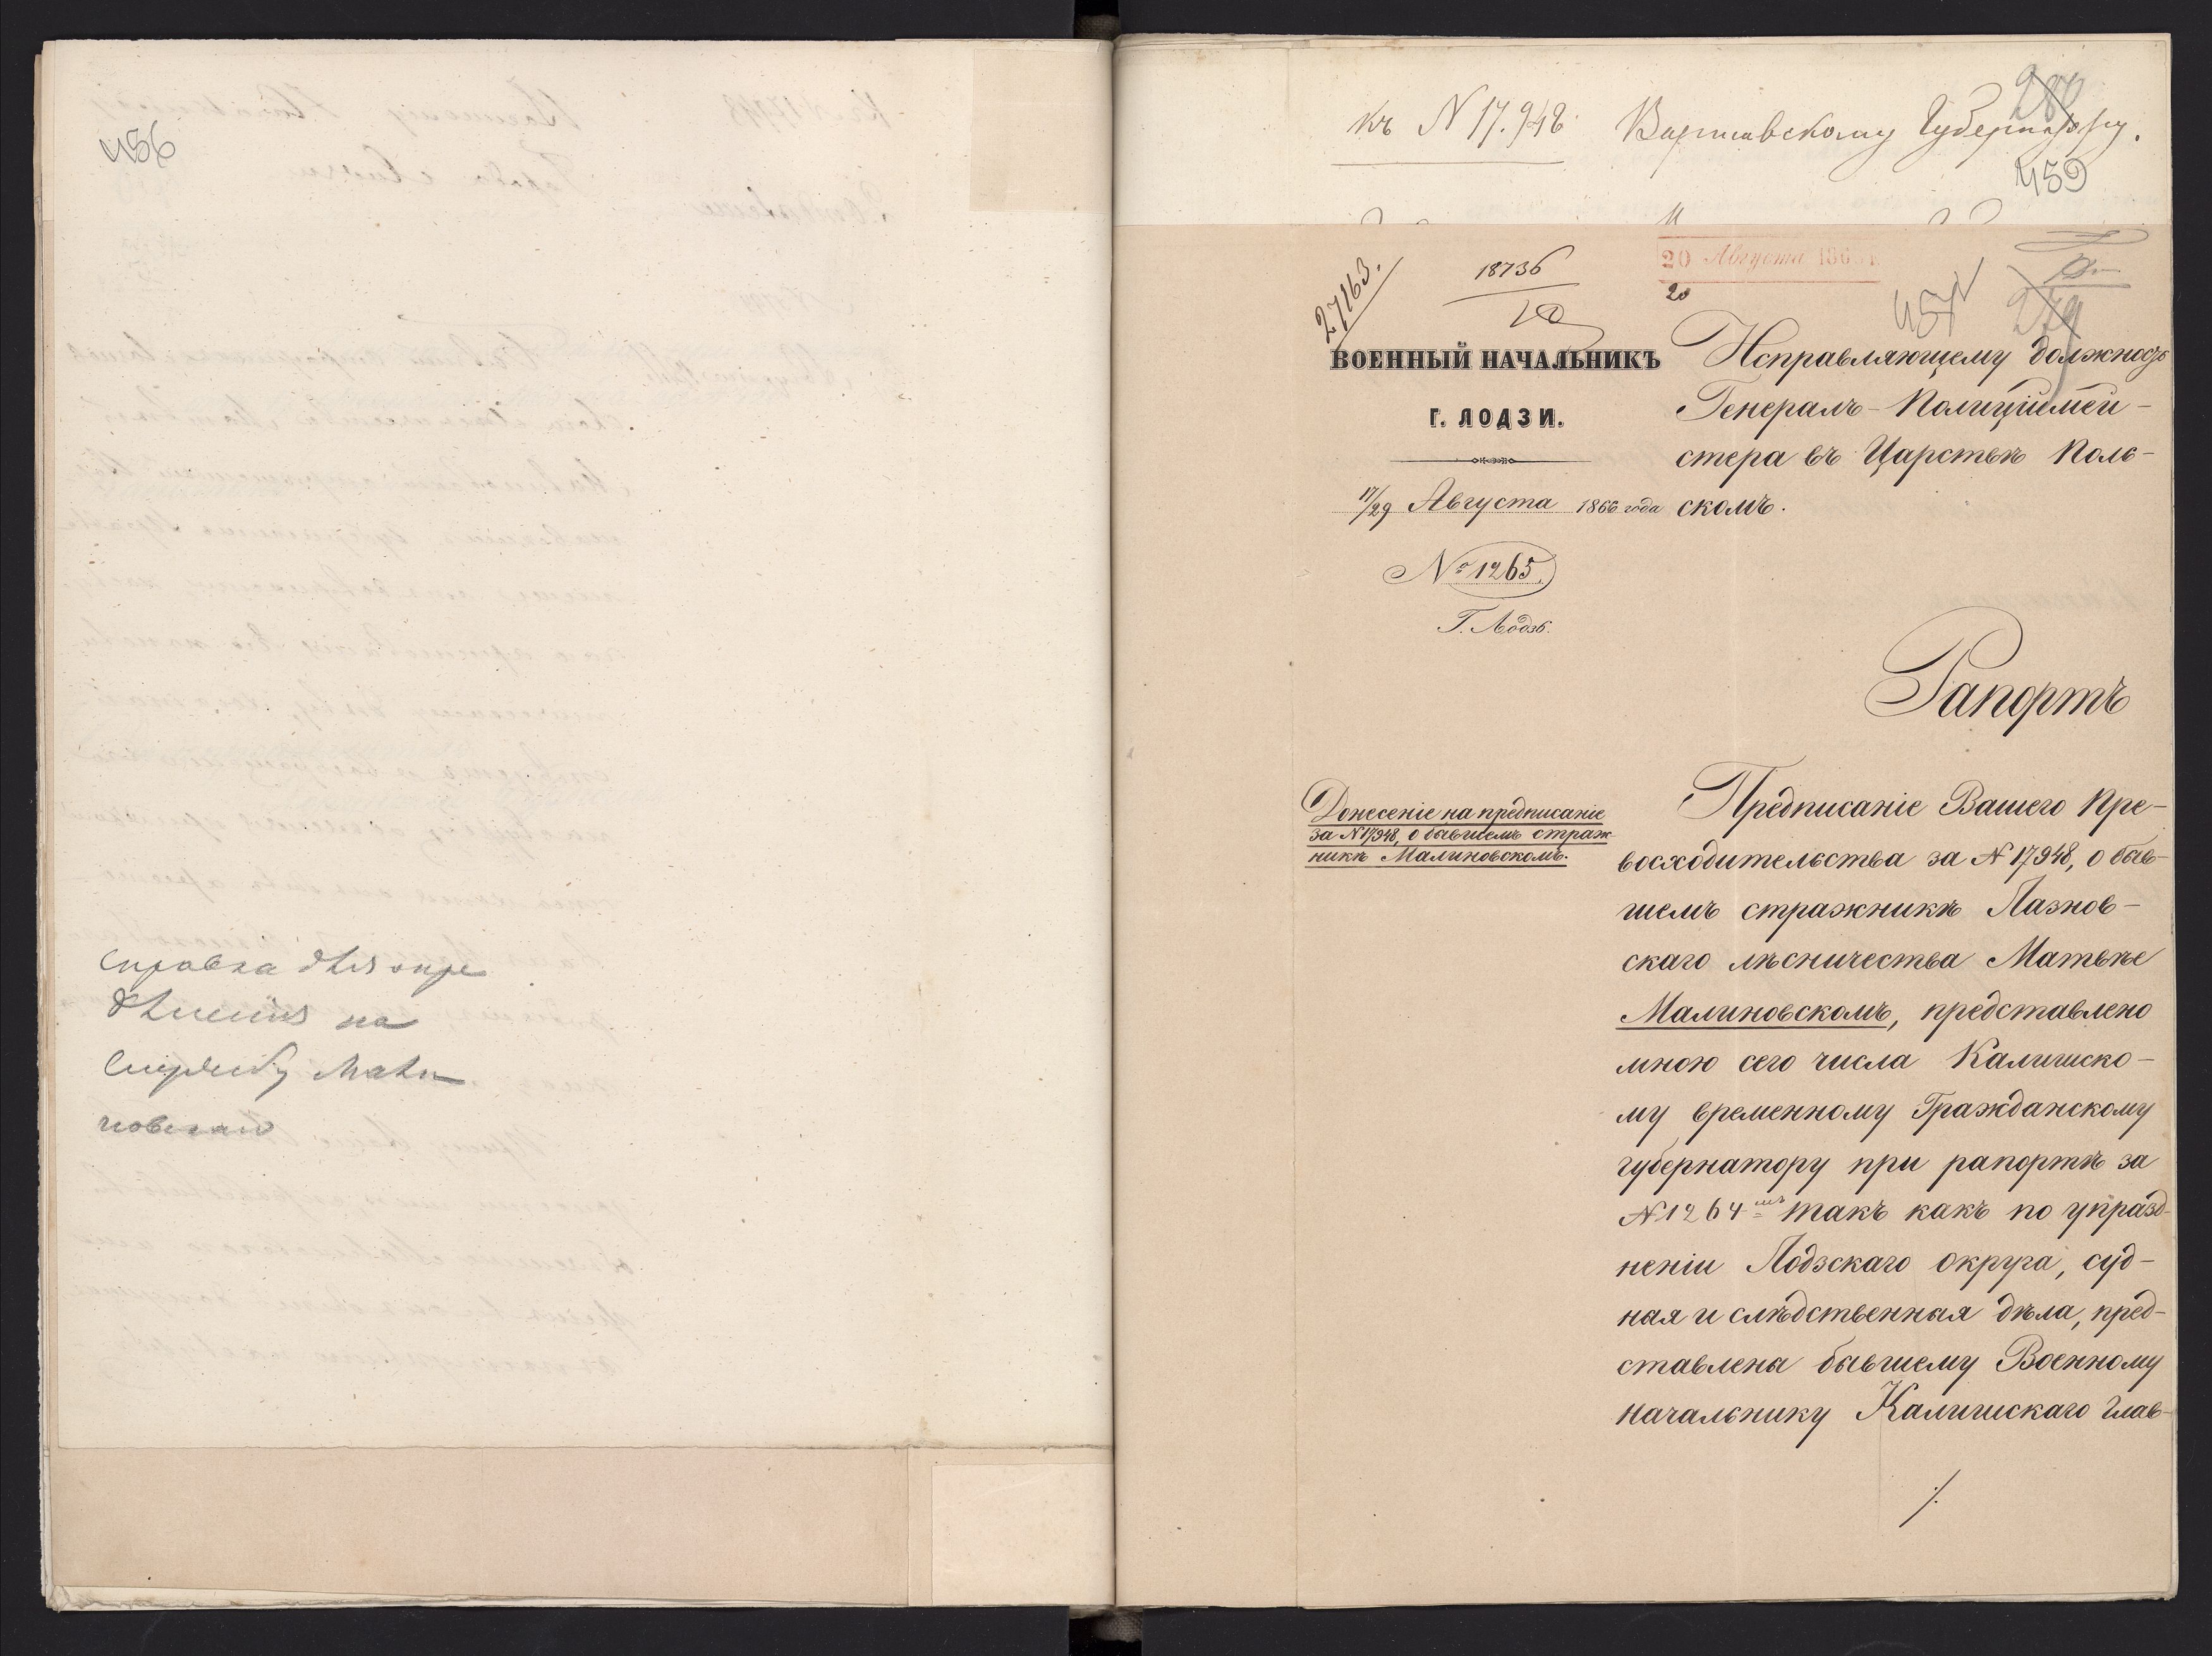 456
справка для опре
дѣленія на
службу Мали
новскаго
къ N 17.948 Варшавскому Губернатору.
280
459
27163.
18736
20 Августа 186
20
457
279
ВОЕННЫЙ НАЧАЛЬНИКЪ
Г. ЛОДЗИ.
17/29 Августа 1866 года
№ 1265.
Г. Лодзь.
Исправляющему должность
Генералъ-Полиціймей-
стера въ Царствѣ Поль-
скомъ.
Рапортъ
Донесеніе на предписаніе
за N 17948, о бывшемъ страж-
никѣ Малиновскомъ.
Предписаніе Вашего Пре-
восходительства за N 17948, о быв-
шемъ стражникѣ Лазнов-
скаго лѣсничества Матвѣе
Малиновскомъ, представлено
мною сего числа Калишско-
му временному Гражданскому
губернатору при рапортѣ за
N 1264-мъ такъ какъ по упразд-
неніи Лодзскаго округа, суд-
ная и слѣдственная дѣла, пред-
ставлены бывшему Военному
Начальнику Калишскаго Глав-
./.